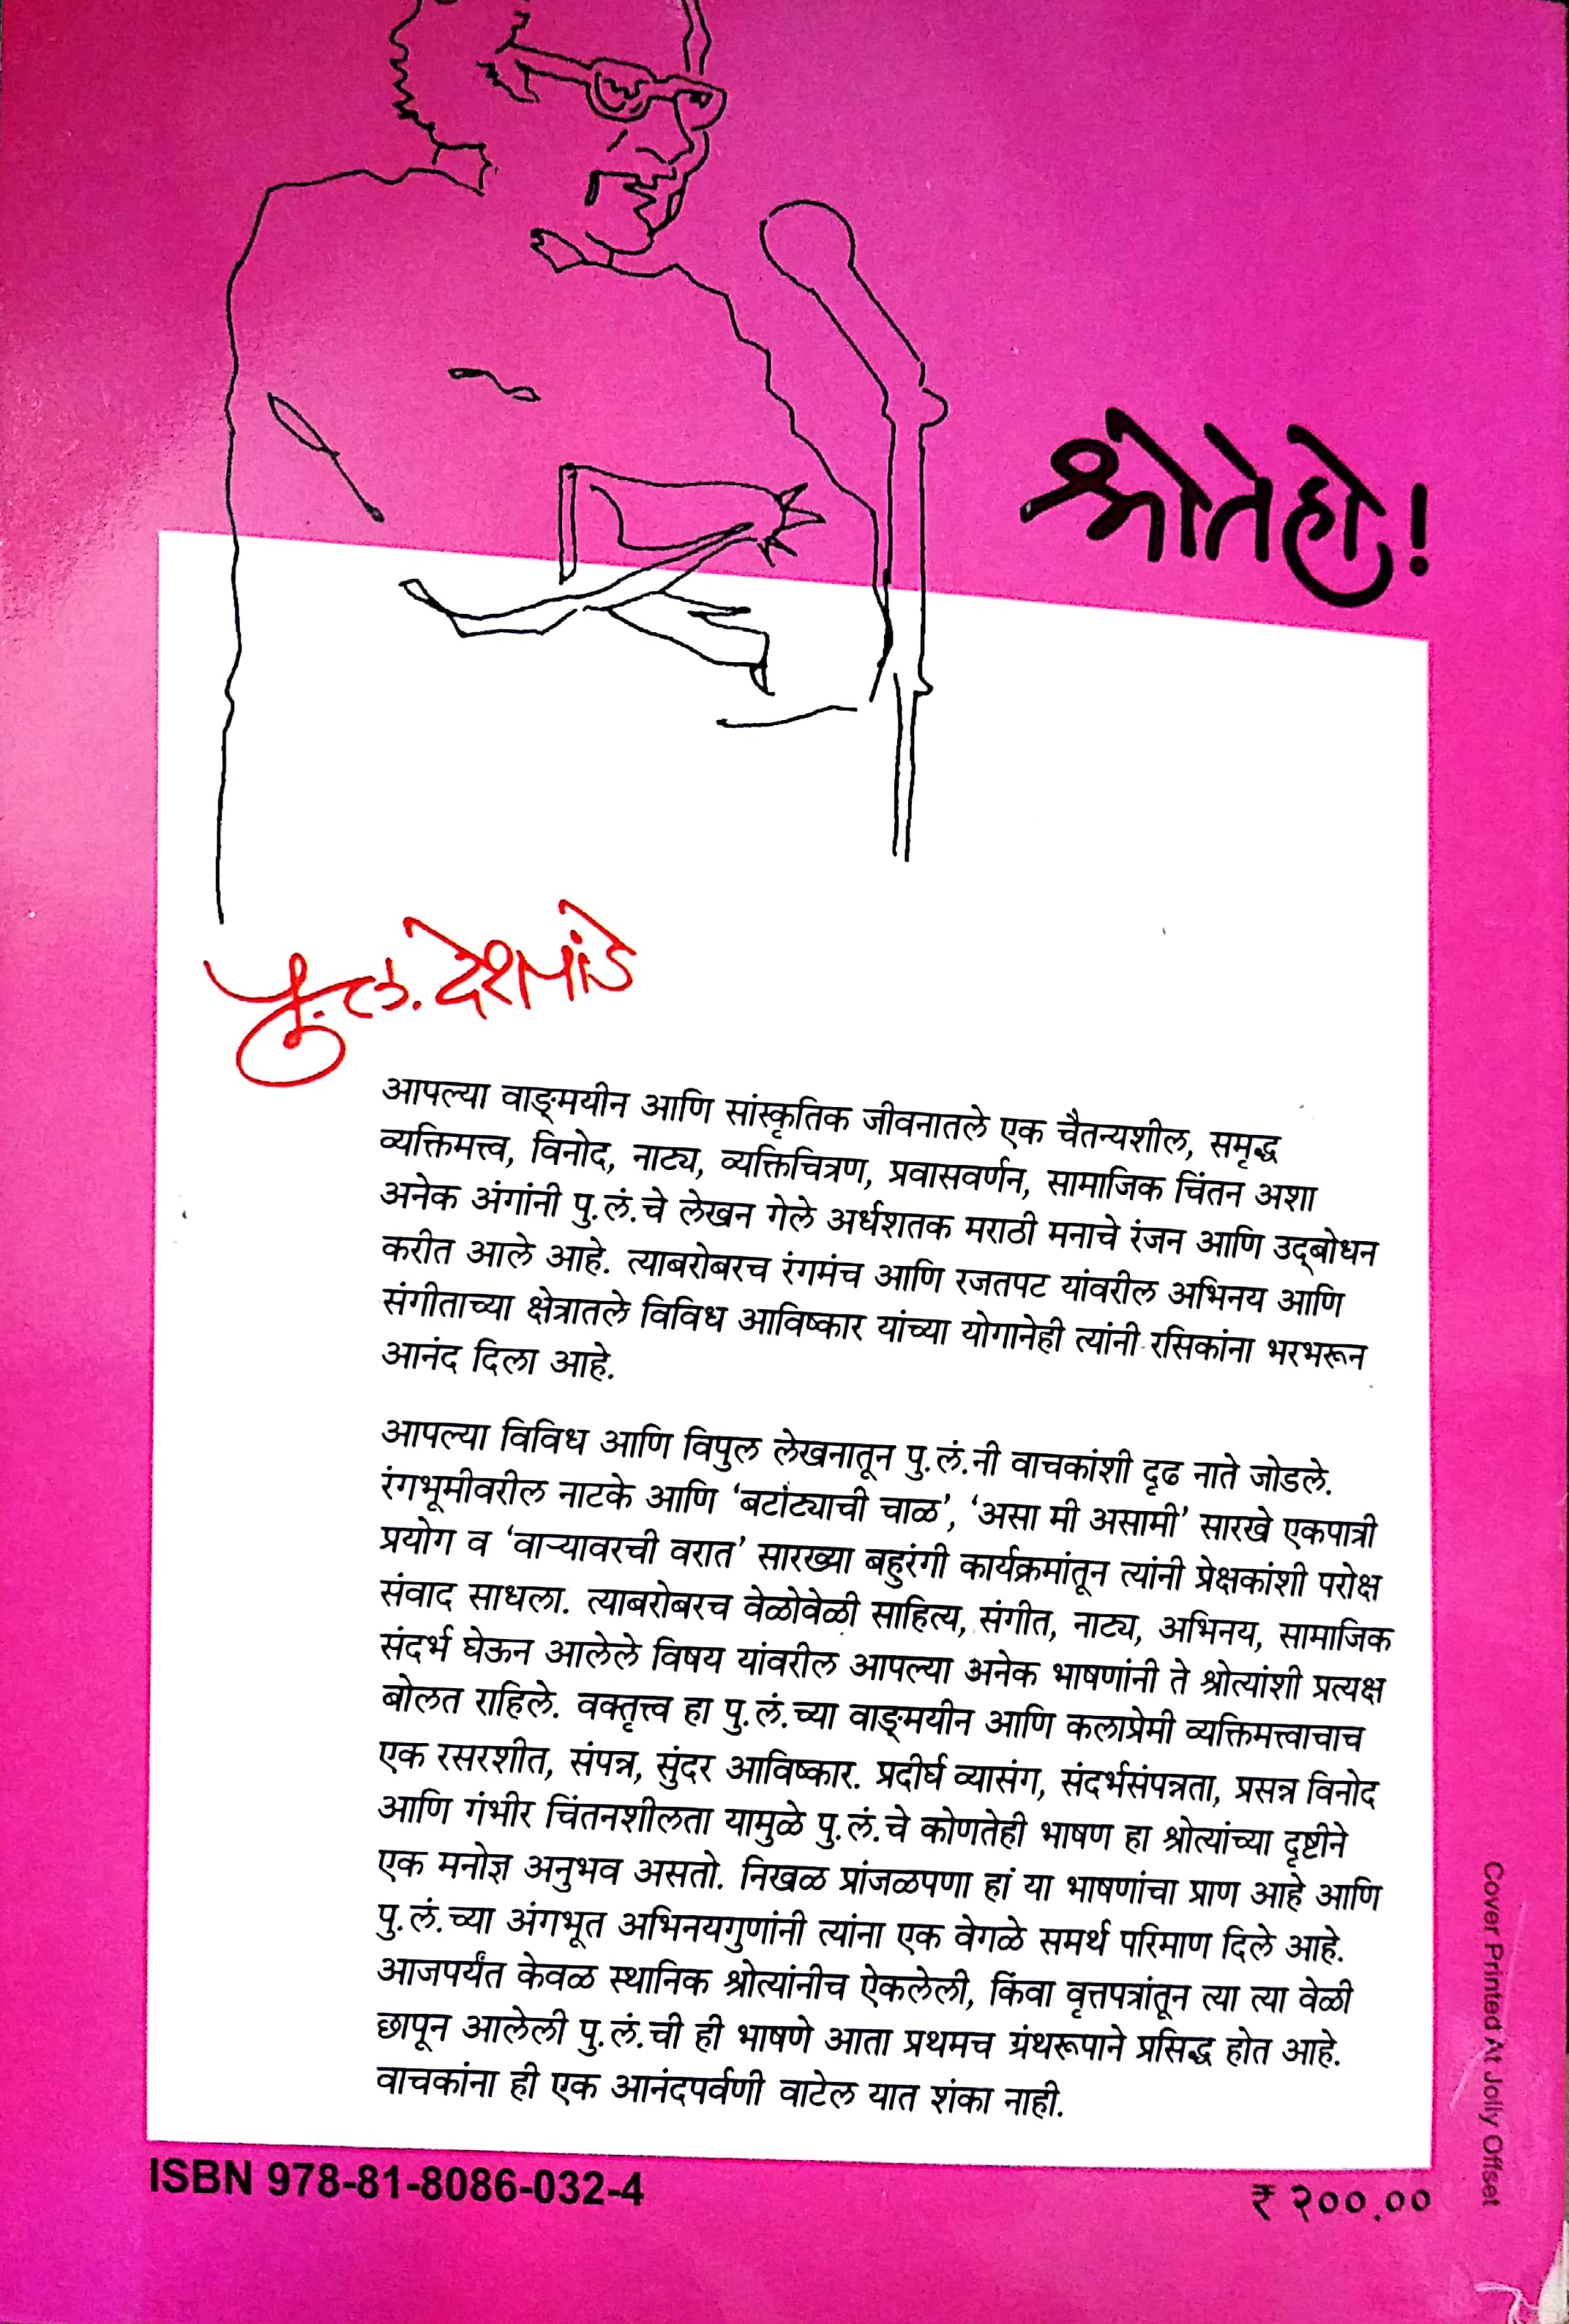 श्रोतेहो!
पु.ल. देशपांडे
आपल्या वाङ्‌मयीन आणि सांस्कृतिक जीवनातले एक चैतन्यशील, समृद्ध
व्यक्तिमत्त्व, विनोद, नाट्य, व्यक्तिचित्रण, प्रवासवर्णन, सामाजिक चिंतन अशा
अनेक अंगांनी पु.लं.चे लेखन गेले अर्धशतक मराठी मनाचे रंजन आणि उद्‌बोधन
करीत आले आहे. त्याबरोबरच रंगमंच आणि रजतपट यांवरील अभिनय आणि
संगीताच्या क्षेत्रातले विविध आविष्कार यांच्या योगानेही त्यांनी रसिकांना भरभरून
आनंद दिला आहे.
आपल्या विविध आणि विपुल लेखनातून पु.लं.नी वाचकांशी दृढ नाते जोडले.
रंगभूमीवरील नाटके आणि ‘बटांट्याची चाळ’, ‘असा मी असामी’ सारखे एकपात्री
प्रयोग व ‘वाऱ्यावरची वरात’ सारख्या बहुरंगी कार्यक्रमांतून त्यांनी प्रेक्षकांशी परोक्ष
संवाद साधला. त्याबरोबरच वेळोवेळी साहित्य, संगीत, नाट्य, अभिनय, सामाजिक
संदर्भ घेऊन आलेले विषय यांवरील आपल्या अनेक भाषणांनी ते श्रोत्यांशी प्रत्यक्ष
बोलत राहिले. वक्तृत्त्व हा पु.लं.च्या वाङ्‌मयीन आणि कलाप्रेमी व्यक्तिमत्त्वाचाच
एक रसरशीत, संपन्न, सुंदर आविष्कार. प्रदीर्घ व्यासंग, संदर्भसंपन्नता, प्रसन्न विनोद
आणि गंभीर चिंतनशीलता यामुळे पु.लं.चे कोणतेही भाषण हा श्रोत्यांच्या दृष्टीने
एक मनोज्ञ अनुभव असतो. निखळ प्रांजळपणा हां या भाषणांचा प्राण आहे आणि
पु.लं.च्या अंगभूत अभिनयगुणांनी त्यांना एक वेगळे समर्थ परिमाण दिले आहे.
आजपर्यंत केवळ स्थानिक श्रोत्यांनीच ऐकलेली, किंवा वृत्तपत्रांतून त्या त्या वेळी
छापून आलेली पु.लं.ची ही भाषणे आता प्रथमच ग्रंथरूपाने प्रसिद्ध होत आहे.
वाचकांना ही एक आनंदपर्वणी वाटेल यात शंका नाही.
ISBN 978-81-8086-032-4
₹ २००.००
Cover Printed At Jolly Offset